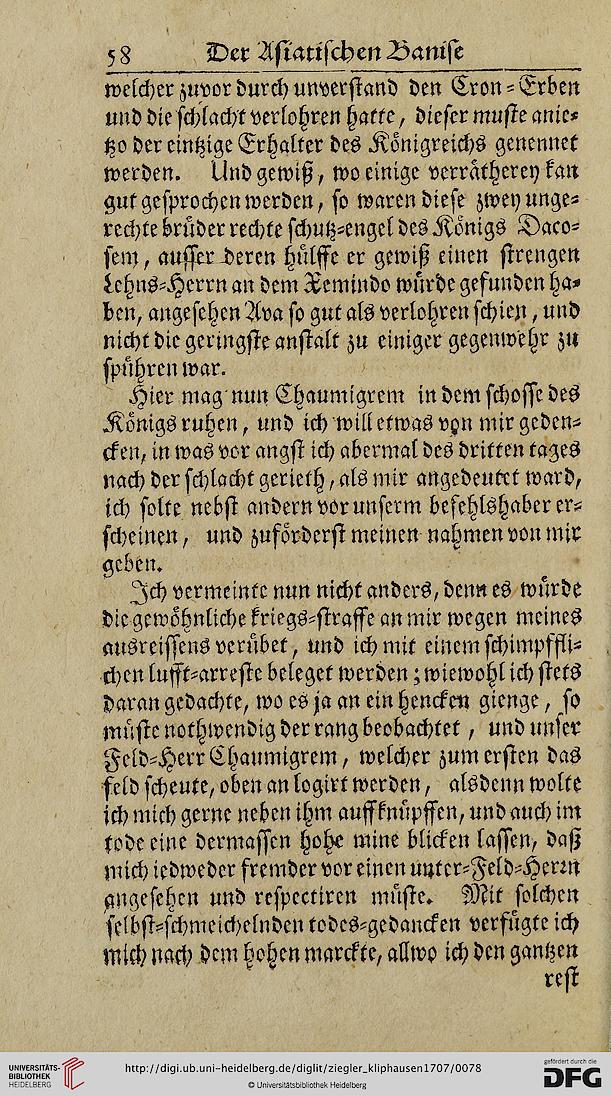 58 Der Asiatischen Banise
welcher zuvor durch unverstand den Cron-Erben
und die schlacht verlohren hatte, dieser muste anie-
tzo der eintzige Erhalter des Königreichs genennet
werden. Und gewiß, wo einige verrätherey kan
gut gesprochen werden, so waren diese zwey unge-
rechte brüder rechte schutz-engel des Königs Daco-
sem, ausser deren hülffe er gewiß einen strengen
Lehns-Herrn an dem Xemindo würde gefunden ha-
ben, angesehen Ava so gut als verlohren schien, und
nicht die geringste anstalt zu einiger gegenwehr zu
spühren war.
Hier mag nun Chaumigrem in dem schosse des
Königs ruhen, und ich will etwas von mir geden-
cken, in was vor angst ich abermal des dritten tages
nach der schlacht gerieth, als mir angedeutet ward,
ich solte nebst andern vor unserm befehlshaber er-
scheinen, und zuförderst meinen nahmen von mir
geben.
Ich vermeinte nun nicht anders, denn es würde
die gewöhnliche kriegs-straffe an mir wegen meines
ausreissens verübet, und ich mit einem schimpffli-
chen lufft-arreste beleget werden; wiewohl ich stets
daran gedachte, wo es ja an ein hencken gienge, so
müste nothwendig der rang beobachtet, und unser
Feld-Herr Chaumigrem, welcher zum ersten das
feld scheute, oben an logirt werden, alsdenn wolte
ich mich gerne neben ihm auffknüpffen, und auch im
tode eine dermassen hohe mine blicken lassen, daß
mich iedweder fremder vor einen unter-Feld-Herrn
angesehen und respectiren müste. Mit solchen
selbst-schmeichelnden todes-gedancken verfügte ich
mich nach dem hohen marckte, allwo ich den gantzen
rest
UNIVERSITÄTS-
BIBLIOTHEK
HEIDELBERG
http://digi.ub.uni-heidelberg.de/diglit/ziegler_kliphausen1707/0078
© Universitätsbibliothek Heidelberg
gefördert durch die
DFG